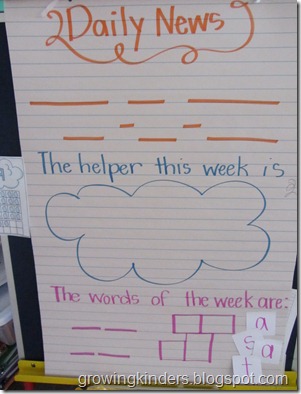 Daily News
The helper this week is
The words of the week are:
a
s a
t
growingkinders.blogspot.com